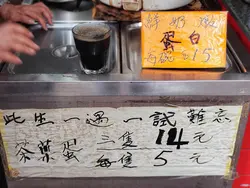 鮮奶燉
蛋白
每碗 $15
此生一遇一試難忘
茶葉蛋 三隻 14元
每隻 5元